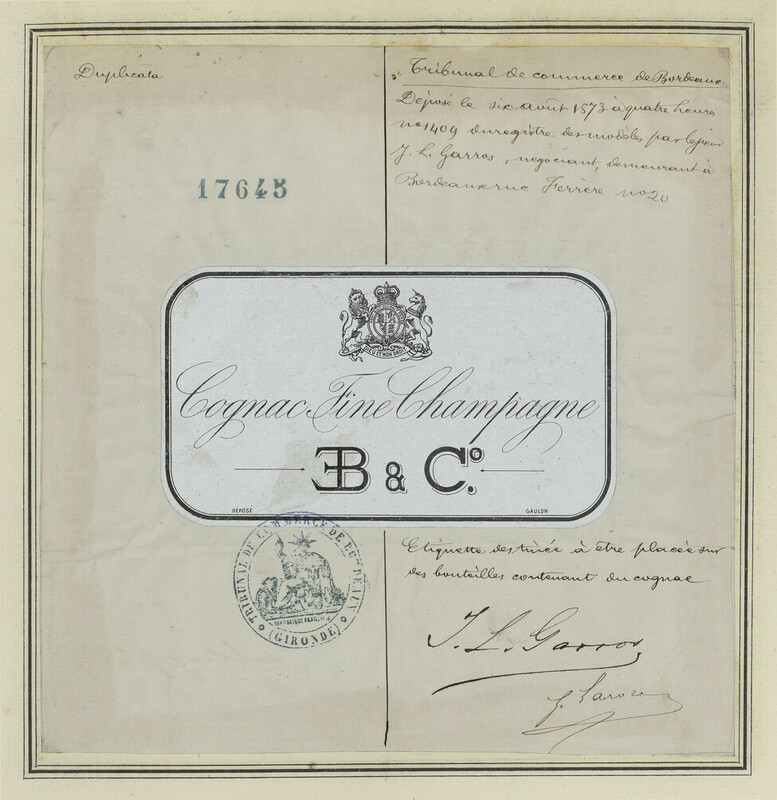 Duplicata
17645
Tribunal de commerce de Bordeaux
Déposé le six août 1873 à quatre heures
no 1409 du registre des modèles, par le sieur
J. L. Garros, négociant, demeurant à
Bordeaux rue Ferrère no 20
DIEU ET MON DROIT
Cognac Fine Champagne
EB & Co.
DÉPOSÉ
GAULON
TRIBUNAL DE COMMERCE DE BORDEAUX
RÉPUBLIQUE FRANÇAISE
(GIRONDE)
Etiquette destinée à être placée sur
des bouteilles contenant du cognac
J. L. Garros